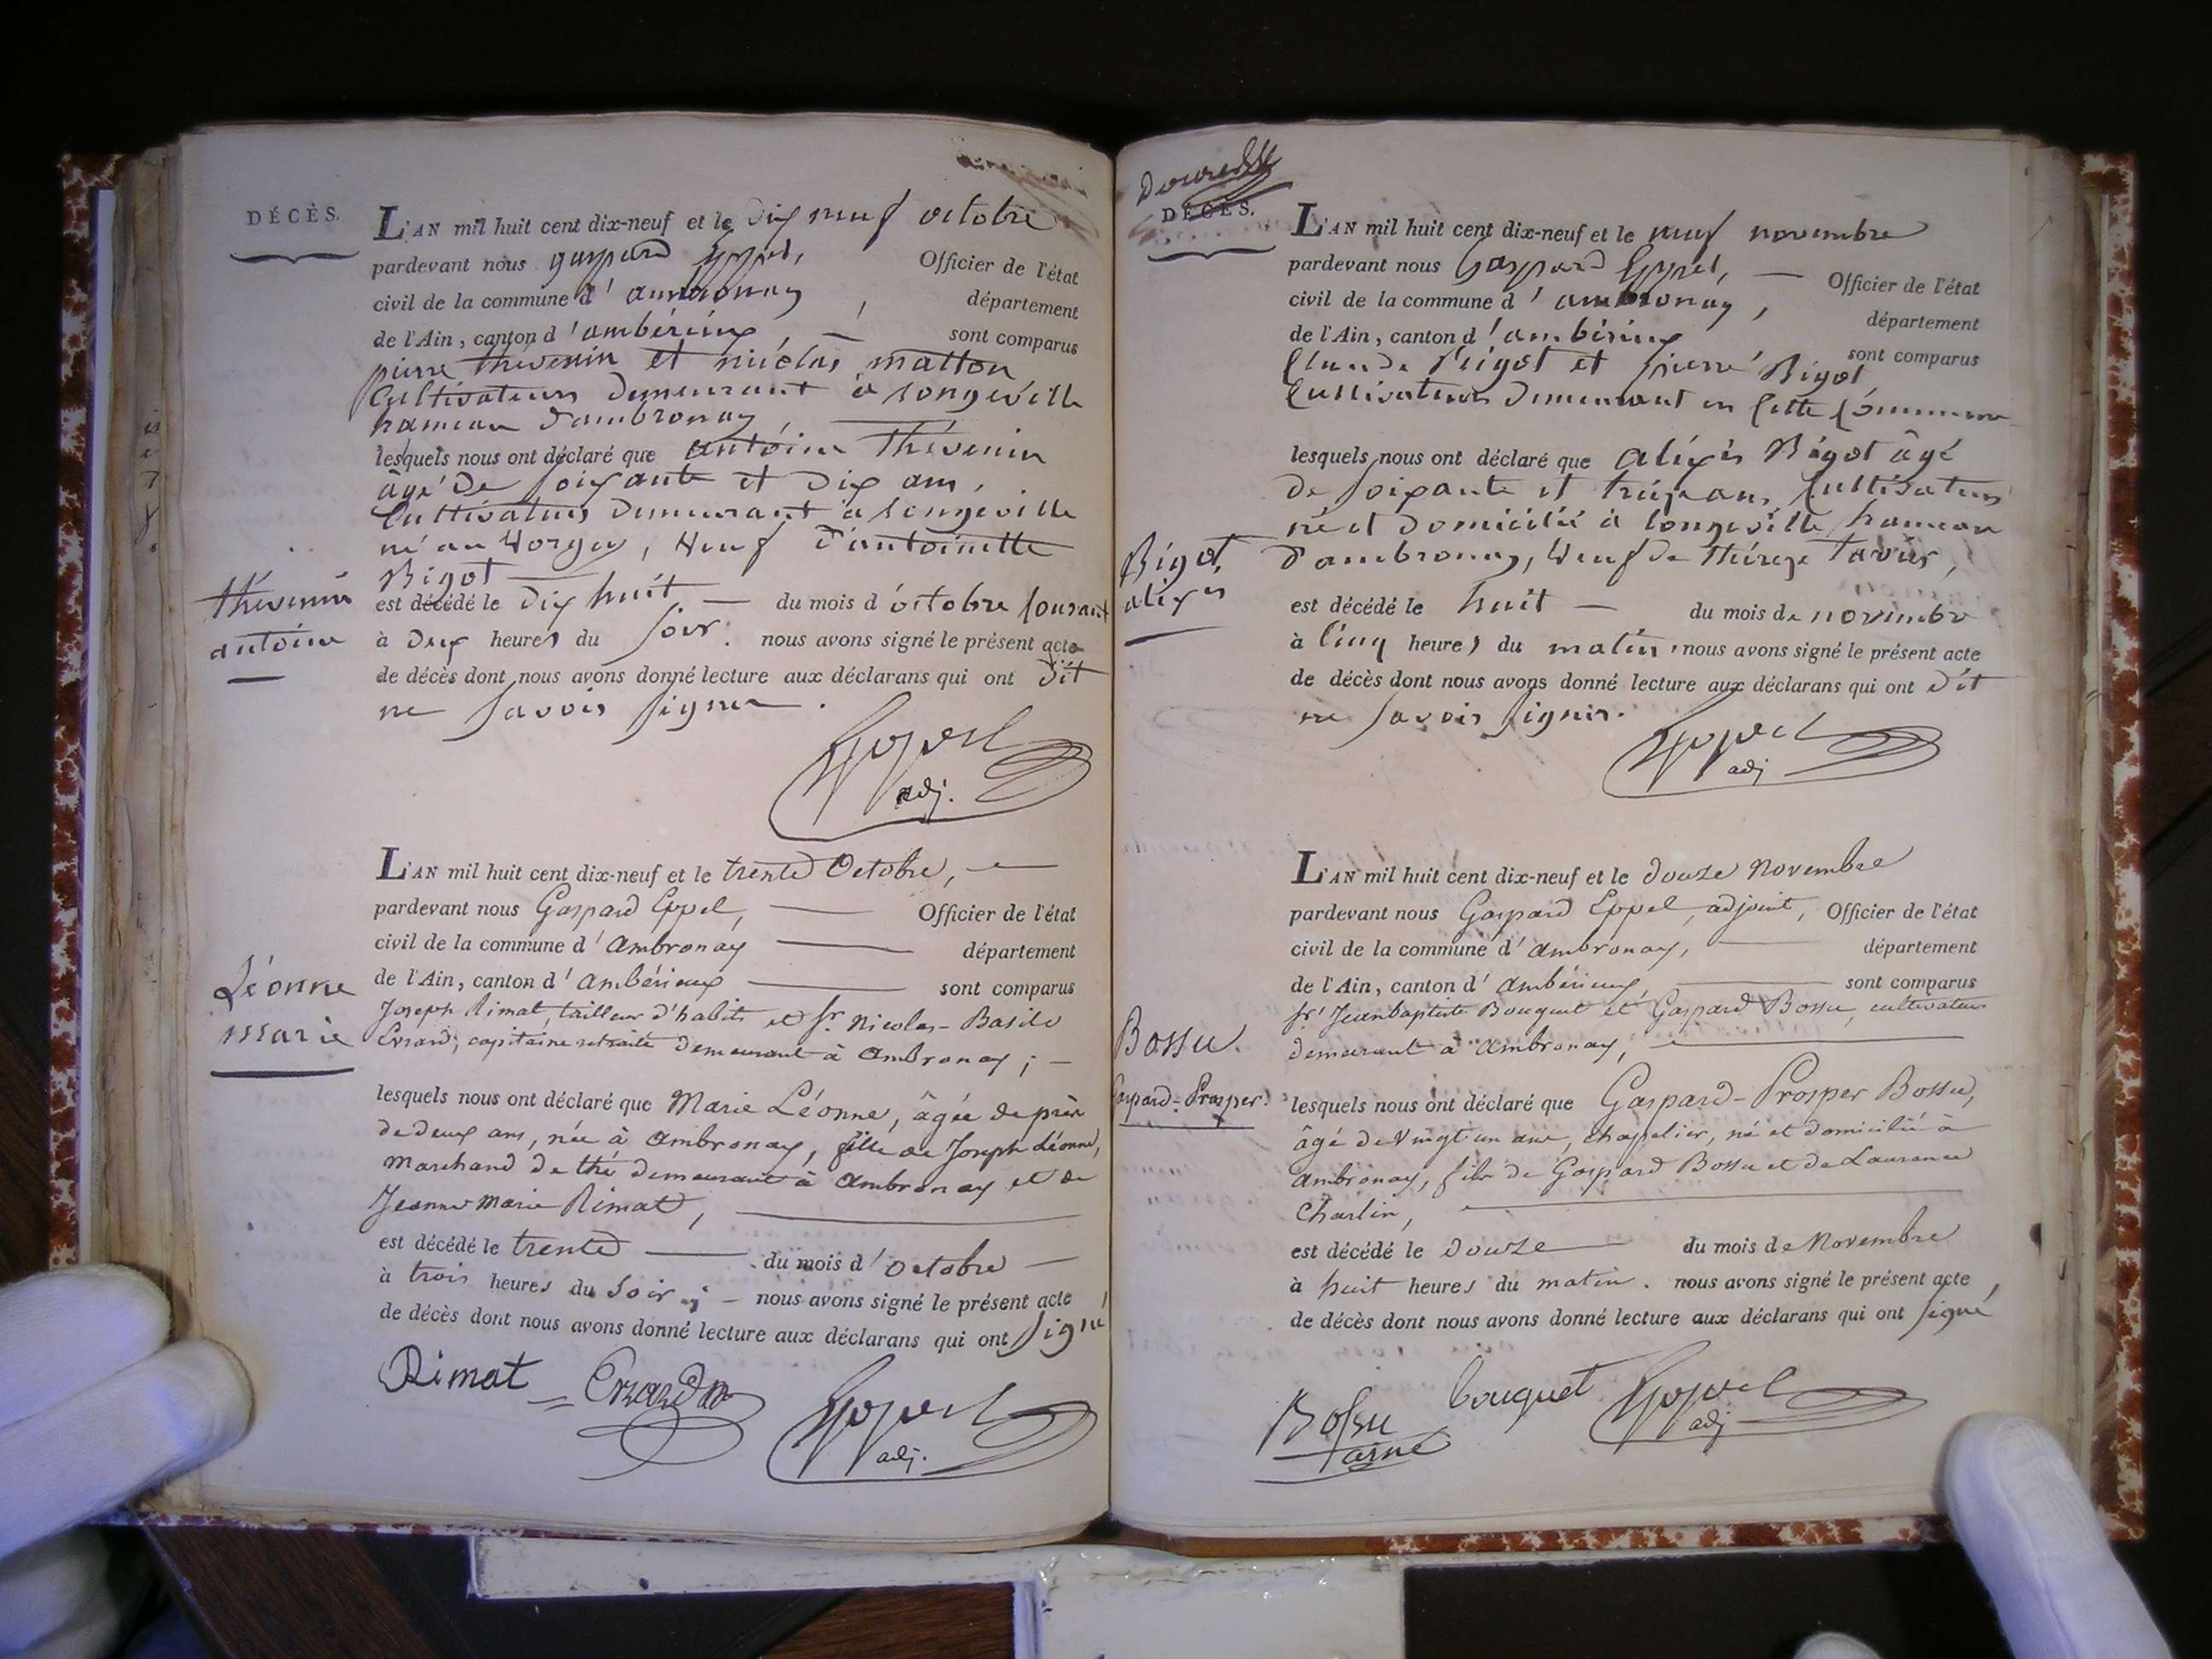 DÉCÈS.
L'AN mil huit cent dix-neuf et le dix neuf octobre
pardevant nous gaspard Eppel, Officier de l'état
civil de la commune d'ambronay, département
de l'Ain, canton d'ambérieux, sont comparus
pierre thévenin et nicolas matton
Cultivateurs demeurant a longeville
hameau d'ambronay,
lesquels nous ont déclaré que antoine Thévenin
âgé de soixante et dix ans,
Cultivateur demeurant a longeville
né au Vorgey, veuf d'antoinette
Bigot
thévenin
antoine
est décédé le dix huit du mois d'octobre courant
à deux heures du soir. nous avons signé le présent acte
de décès dont nous avons donné lecture aux déclarans qui ont dit
ne savoir signer.
Eppel
adj.
L'AN mil huit cent dix-neuf et le trente Octobre,
pardevant nous Gaspard Eppel, Officier de l'état
civil de la commune d'ambronay département
de l'Ain, canton d'ambérieux sont comparus
Léonne
marie
Joseph Rimat, tailleur d'habits et Sr. Nicolas-Basile
Evrard, capitaine retraité demeurant à ambronay;
lesquels nous ont déclaré que Marie Léonne, âgée de près
de deux ans, née à ambronay, fille de Joseph Léonne,
Marchand de thé demeurant à ambronay et de
Jeanne Marie Rimat,
est décédé le trente du mois d'octobre
à trois heures du soir; nous avons signé le présent acte
de décès dont nous avons donné lecture aux déclarans qui ont signé
Rimat Evrard
Eppel
adj.
DÉCÈS.
L'AN mil huit cent dix-neuf et le neuf novembre
pardevant nous Gaspard Eppel, Officier de l'état
civil de la commune d'ambronay, département
de l'Ain, canton d'ambérieux sont comparus
Claude Bigot et pierre Bigot
Cultivateurs demeurant en cette commune
lesquels nous ont déclaré que alixis Bigot âgé
de soixante et treize ans, Cultivateur
né et domicilié à longeville hameau
d'ambronay, veuf de thérèze Tavier,
Bigot,
alixis
est décédé le huit du mois de novembre
à cinq heures du matin, nous avons signé le présent acte
de décès dont nous avons donné lecture aux déclarans qui ont dit
ne savoir signer.
Eppel
adj
L'AN mil huit cent dix-neuf et le douze novembre
pardevant nous Gaspard Eppel, adjoint, Officier de l'état
civil de la commune d'ambronay, département
de l'Ain, canton d'ambérieux, sont comparus
Sr. Jeanbaptiste Bouquet et Gaspard Bossu, cultivateurs
demeurant à ambronay,
Bossu.
Gaspard-Prosper.
lesquels nous ont déclaré que Gaspard-Prosper Bossu,
âgé de vingt un ans, chapelier, né et domicilié à
ambronay, fils de Gaspard Bossu et de Laurence
Charlin,
est décédé le douze du mois de Novembre
à huit heures du matin. nous avons signé le présent acte,
de décès dont nous avons donné lecture aux déclarans qui ont signé
Bossu bouquet Eppel
adj